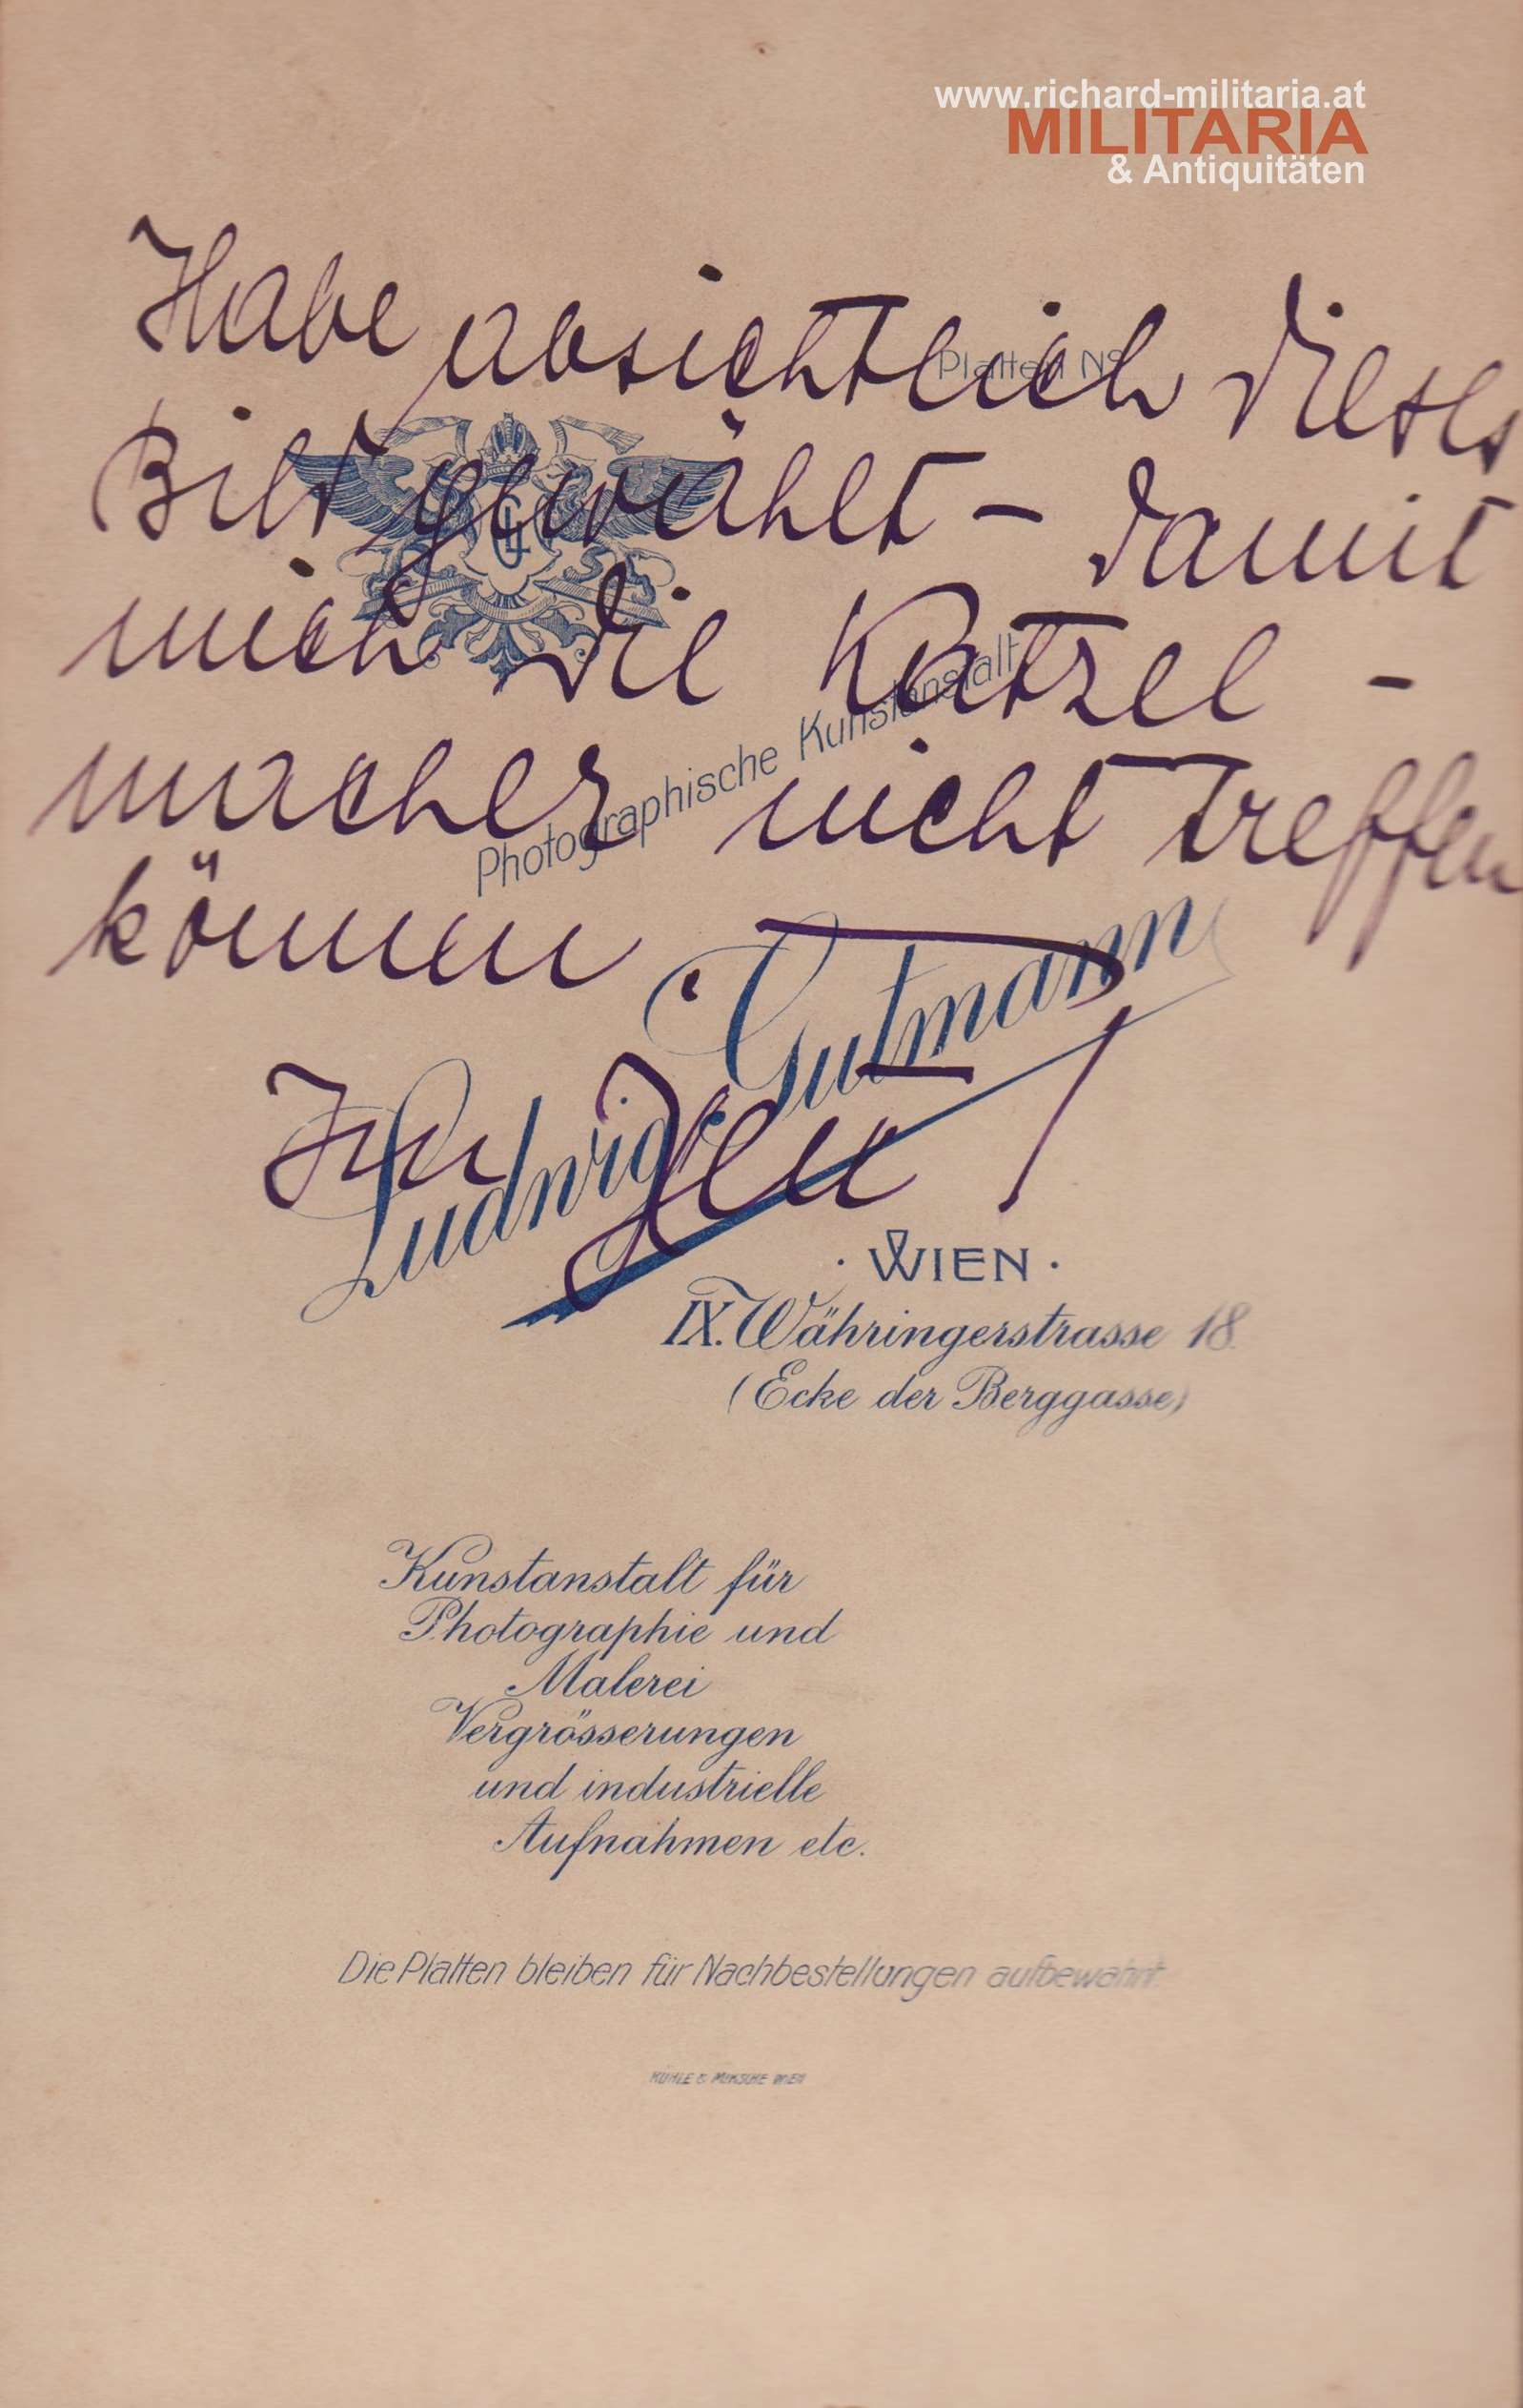 www.richard-militaria.at
MILITARIA
& Antiquitäten
Platten No
Habe absichtlich dieses
Bild gewählt – damit
mich die Katzel-
macher nicht treffen
können
Photographische Kunstanstalt
Ludwig Gutmann
· WIEN ·
IX. Währingerstrasse 18.
(Ecke der Berggasse)
Kunstanstalt für
Photographie und
Malerei
Vergrösserungen
und industrielle
Aufnahmen etc.
Die Platten bleiben für Nachbestellungen aufbewahrt.
WIEN